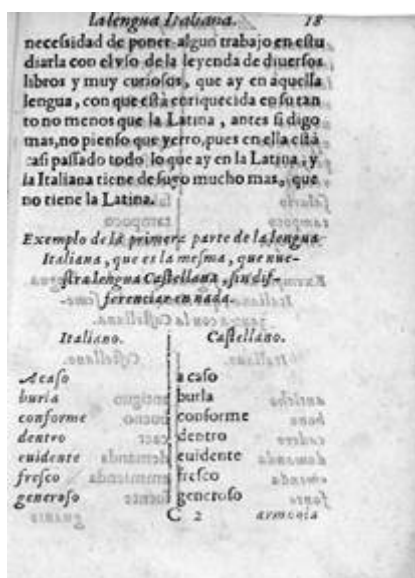 la lengua Italiana. 18
neceſsidad de poner algun trabajo en eſtu
diarla con el vſo de la leyenda de diuerſos
libros y muy curioſos, que ay en aquella
lengua, con que eſtà enriquecida en ſu tan
to no menos que la Latina, antes ſi digo
mas, no pienſo que yerro, pues en ella eſtà
caſi paſſado todo lo que ay en la Latina, y
la Italiana tiene de ſuyo mucho mas, que
no tiene la Latina.
Exemplo de la primera parte de la lengua
Italiana, que es la meſma, que nue-
ſtra lengua Caſtellana, ſin diſ-
ferenciar en nada.
Italiano. Caſtellano.
Acaſo acaſo
burla burla
conforme conforme
dentro dentro
euidente euidente
freſco freſco
generoſo generoſo
C 2 armonia